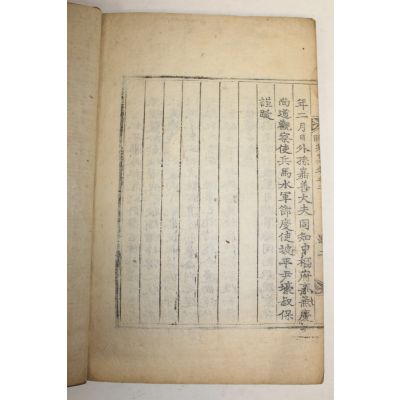 年二月日外孫嘉善大夫同知中樞府事兼慶
尙道觀察使兵馬水軍節度使坡平尹壕叔保
謹跋